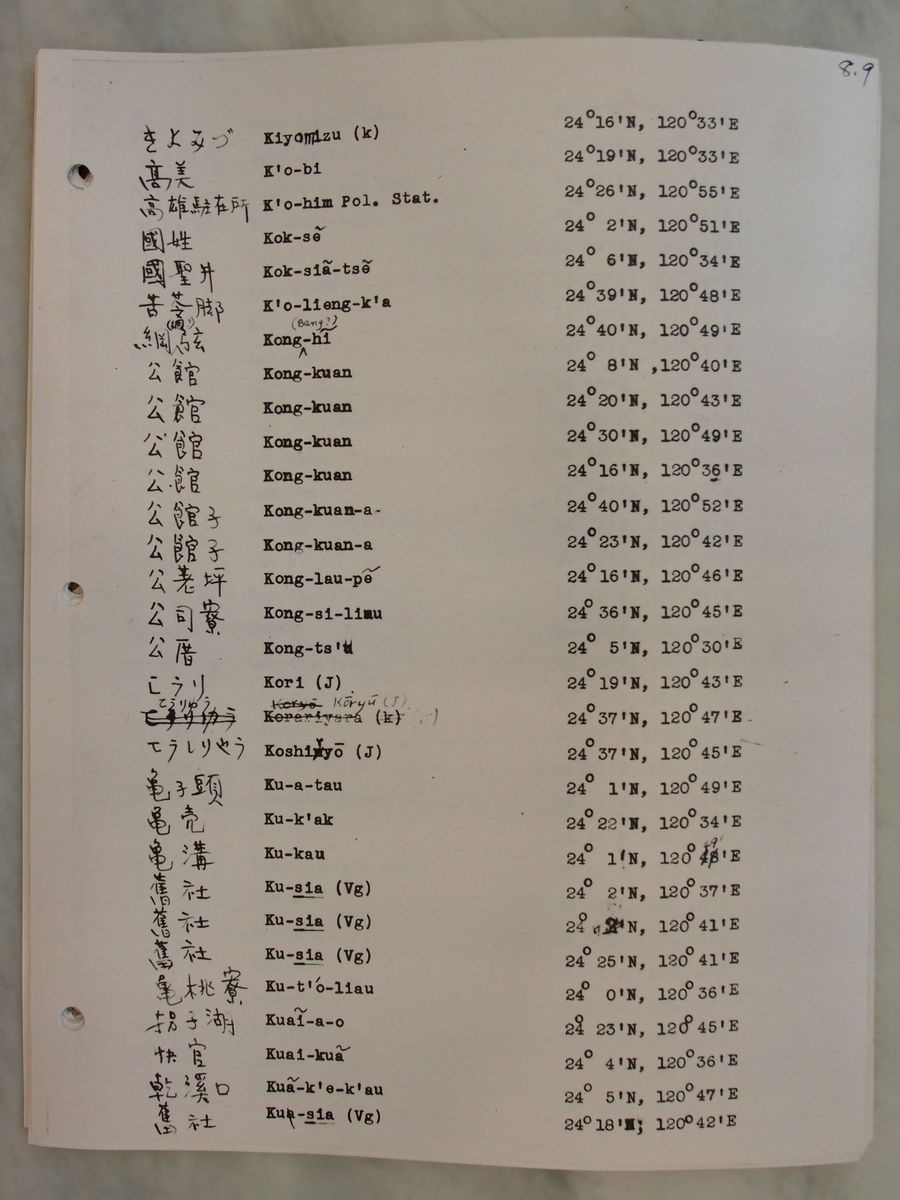 8.9
きよみづ Kiyomizu (k) 24°16'N, 120°33'E
高美 K'o-bi 24°19'N, 120°33'E
高雄駐在所 K'o-him Pol. Stat. 24°26'N, 120°55'E
國姓 Kok-sẽ 24° 2'N, 120°51'E
國聖井 Kok-siã-tsẽ 24° 6'N, 120°34'E
苦苓脚 K'o-lieng-k'a 24°39'N, 120°48'E
(Bang?)
網 Kong-hĩ 24°40'N, 120°49'E
公館 Kong-kuan 24° 8'N ,120°40'E
公館 Kong-kuan 24°20'N, 120°43'E
公館 Kong-kuan 24°30'N, 120°49'E
公館 Kong-kuan 24°16'N, 120°36'E
公館子 Kong-kuan-a- 24°40'N, 120°52'E
公館子 Kong-kuan-a 24°23'N, 120°42'E
公荖坪 Kong-lau-pẽ 24°16'N, 120°46'E
公司寮 Kong-si-liau 24°36'N, 120°45'E
公厝 Kong-ts'u 24° 5'N, 120°30'E
こうり Kori (J) 24°19'N, 120°43'E
こうりゅう Kōryū (J)
24°37'N, 120°47'E
こうしりやう Koshiryō (J) 24°37'N, 120°45'E
亀子頭 Ku-a-tau 24° 1'N, 120°49'E
亀売 Ku-k'ak 24°22'N, 120°34'E
亀溝 Ku-kau 24° 1'N, 120° 'E
舊社 Ku-sia (Vg) 24° 2'N, 120°37'E
舊社 Ku-sia (Vg) 24° 2'N, 120°41'E
舊社 Ku-sia (Vg) 24°25'N, 120°41'E
亀桃寮 Ku-t'ó-liau 24° 0'N, 120°36'E
拐子湖 Kuaĩ-a-o 24°23'N, 120°45'E
快官 Kuai-kuã 24° 4'N, 120°36'E
乾溪口 Kuã-k'e-k'au 24° 5'N, 120°47'E
舊社 Ku-sia (Vg) 24°18'N, 120°42'E